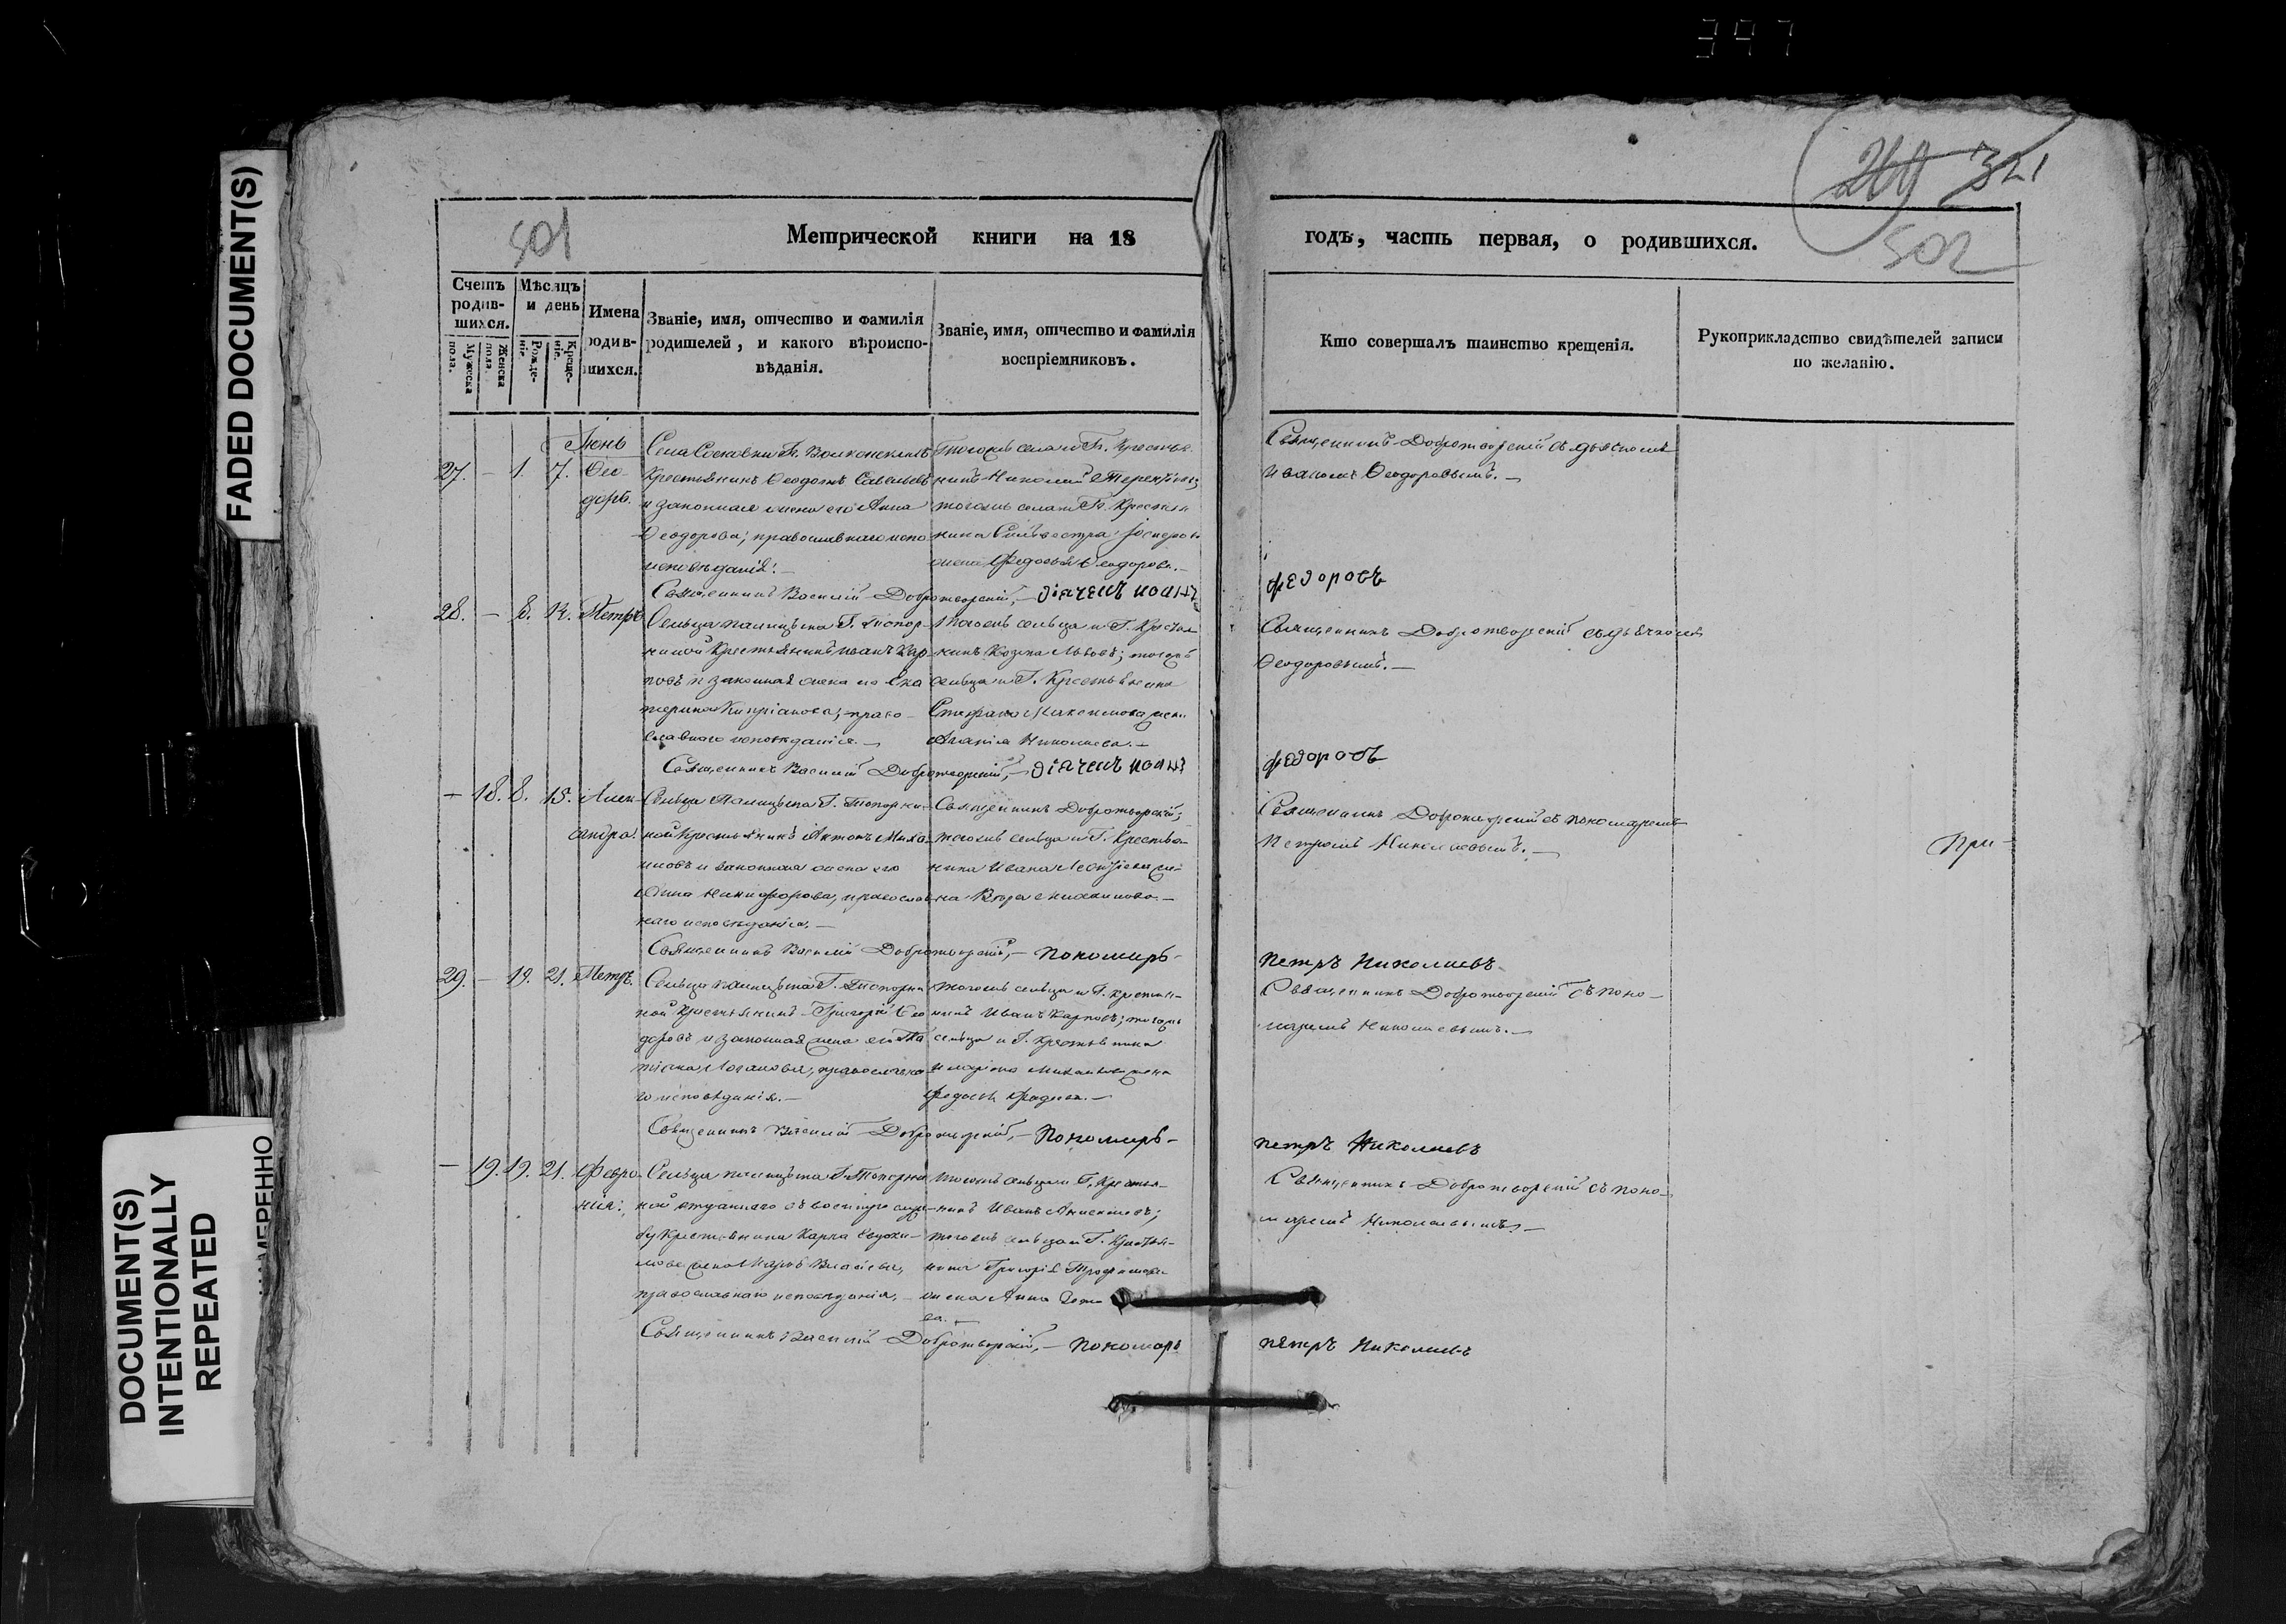 397
FADED DOCUMENT(S)
DOCUMENT(S)
INTENTIONALLY
REPEATED
501
Метрической книги на 18
годъ, часть первая, о родившихся.
321
502
Счетъ
родив-
шихся.
Мужеска
пола.
Женска
пола.
Мѣсяцъ
и день
Рожде-
ніе.
Креще-
ніе.
Имена
родив-
шихся.
Званіе, имя, отчество и фамилія
родителей, и какого вѣроиспо-
вѣданія.
Званіе, имя, отчество и фамилія
воспріемниковъ.
Кто совершалъ таинство крещенія.
Рукоприкладство свидѣтелей записи
по желанію.
Іюнь
27. – 1. 7. Ѳео-
доръ.
Села Сосновки Г. Волконскихъ
крестьянинъ Ѳеодотъ Савельевъ
и законная жена его Анна
Ѳеодорова; православнаго испо-
вѣданія.
тогожъ села и Г. Крестья-
нинъ Николай Терентьевъ;
тогожъ села и Г. Крестья-
нина Сильвестра
жена Федосья Ѳеодорова.
Священникъ Добротворскій съ дьячкомъ
Иваномъ Ѳеодоровымъ.
Священникъ Василій Добротворскій, – діачекъ иванъ
федоровъ
28. – 8. 14. Петръ
Сельца Г. Топор-
ниной Крестьянинъ Иванъ Кар-
повъ и законная жена его Ека-
терина Кипріанова; право-
славнаго исповѣданія.
тогожъ сельца и Г. Крестья-
нинъ Козма Львовъ; тогожъ
сельца и Г. Крестьянина
Стефана Максимова жена
Николаева.
Священникъ Добротворскій съ дьячкомъ
Ѳеодоровымъ.
Священникъ Василій Добротворскій, – діачекъ иванъ
федоровъ
– 18. 8. 15. Алек-
сандра.
Сельца Г. Топорни-
ной Крестьянинъ Антонъ Миха-
иловъ и законная жена его
Анна Никифорова, православ-
наго исповѣданія.
Священникъ Добротворскій;
тогожъ сельца и Г. Крестья-
нина Ивана же-
на Вѣра
Священникъ Добротворскій съ пономаремъ
Петромъ Николаевымъ.
При-
Священникъ Василій Добротворскій, – Пономарь
петръ Николаевъ
29. – 19. 21. Петръ.
Сельца Г. Топорни-
ной Крестьянинъ Григорій Ѳео-
доровъ и законная жена его Та-
тіана православна-
го исповѣданія.
тогожъ сельца и Г. крестья-
нинъ Иванъ Карповъ; тогожъ
сельца и Г. крестьянина
жена
Федосья
Священникъ Добротворскій съ поно-
маремъ Николаевымъ.
Священникъ Василій Добротворскій, – Пономарь
петръ Николаевъ
– 19. 19. 21. Февро-
нія.
Сельца Г. Топорни-
ной отданнаго въ военную служ-
бу крестьянина Карпа Евдоки-
мова жена Марѳа Власьева,
православнаго исповѣданія.
тогожъ сельца и Г. Крестья-
нинъ Иванъ
тогожъ сельца и Г. Крестья-
нина Григорія Трофимова
жена Анна
ва.
Священникъ Добротворскій съ поно-
маремъ Николаевымъ.
Священникъ Василій Добротворскій, – Пономарь
петръ Николаевъ